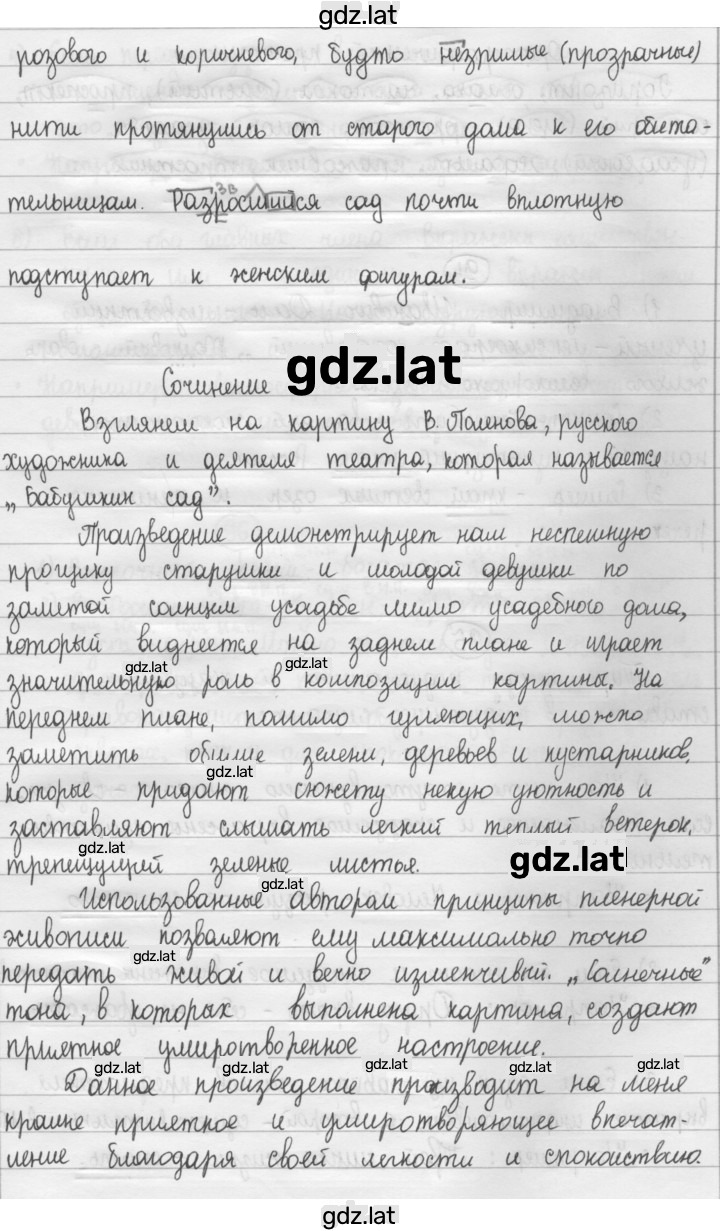 gdz.lat
розового и коричневого, будто незримые (прозрачные)
нити протянулись от старого дома к его обита-
тельницам. Разросшийся сад почти вплотную
подступает к женским фигурам.
gdz.lat
Сочинение
Взглянем на картину В. Поленова, русского
художника и деятеля театра, которая называется
„Бабушкин сад".
Произведение демонстрирует нам неспешную
прогулку старушки и молодой девушки по
залитой солнцем усадьбе мимо усадебного дома,
который виднеется на заднем плане и играет
gdz.lat gdz.lat
значительную роль в композиции картины. На
переднем плане, помимо гуляющих, можно
заметить обилие зелени, деревьев и кустарников,
gdz.lat
которые придают сюжету некую уютность и
заставляют слышать легкий теплый ветерок,
трепещущий зеленые листья.
gdz.lat
gdz.lat
Использованные автором принципы пленерной
живописи позволяют ему максимально точно
gdz.lat
передать живой и вечно изменчивый. „Солнечные"
тона, в которых выполнена картина, создают
приятное умиротворенное настроение.
gdz.lat gdz.lat gdz.lat
Данное произведение производит на меня
крайне приятное и умиротворяющее впечат-
gdz.lat gdz.lat
ление благодаря своей легкости и спокойствию.
gdz.lat